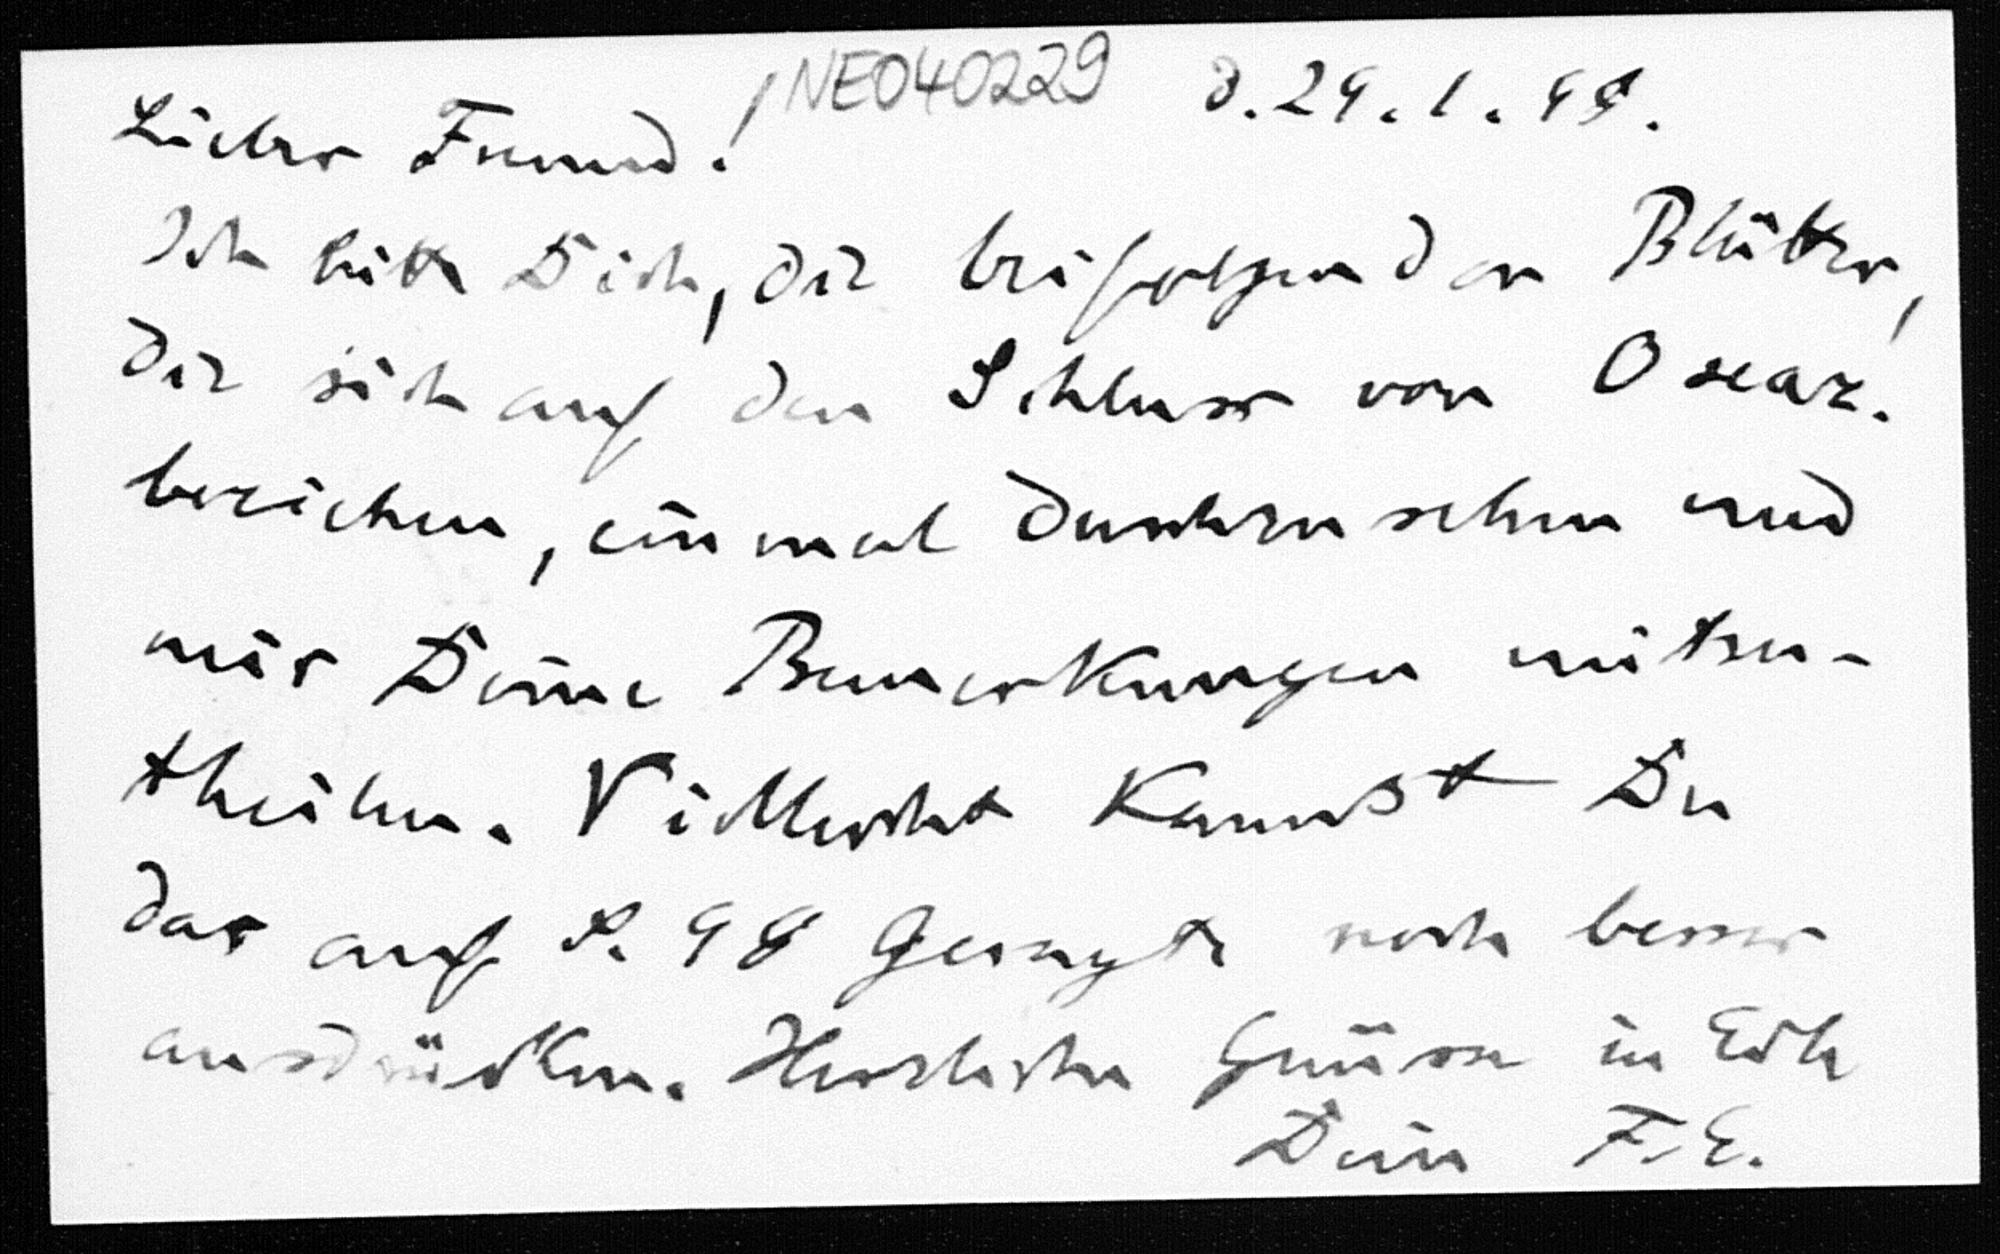 NE040229
d. 29. 1. 98.
Lieber Freund!
Ich bitte Dich, die beifolgenden Blätter,
die sich auf den Schluss von Oscar.
beziehen, einmal durchzusehen und
mir Deine Bemerkungen mitzu-
theilen. Vielleicht kannst Du
das auf S. 98 Gesagte noch besser
ausdrücken. Herzliche Grüsse in Eile
Dein F. E.